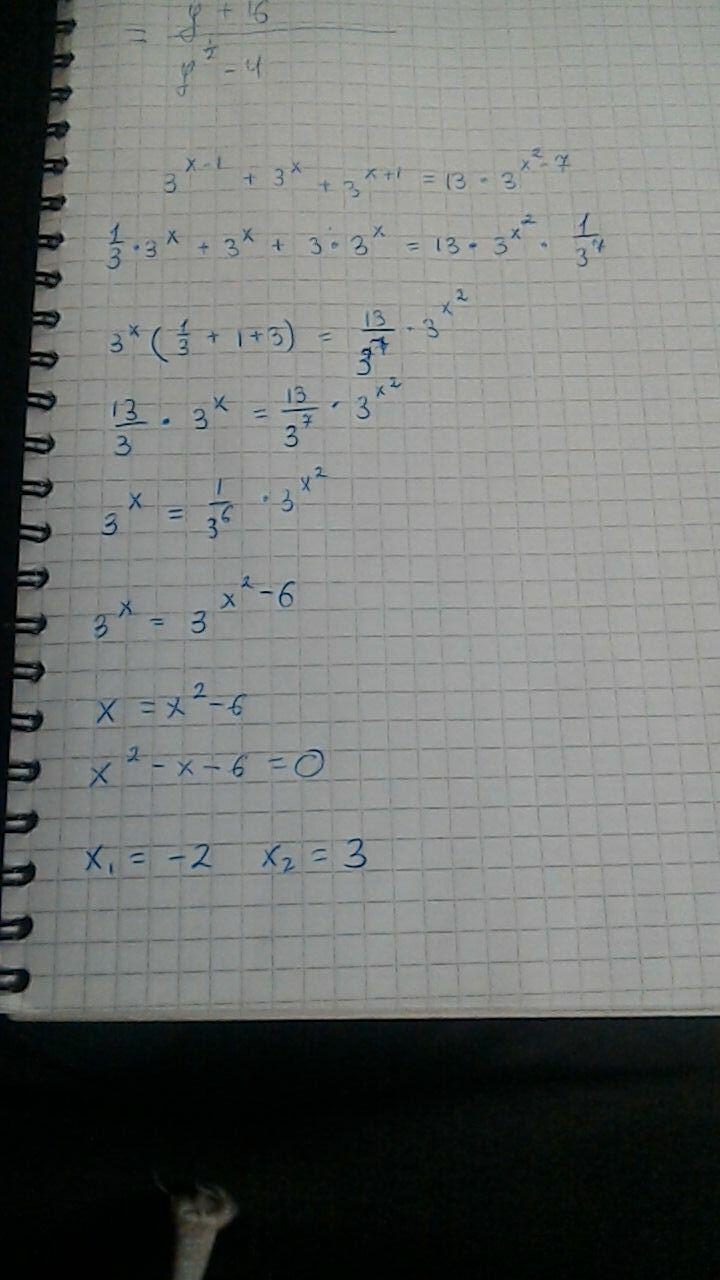 = (y + 16)/(y^(1/2) - 4)
3^(x-1) + 3^x + 3^(x+1) = 13 · 3^(x²-7)
1/3 · 3^x + 3^x + 3 · 3^x = 13 · 3^(x²) · 1/3^7
3^x (1/3 + 1 + 3) = 13/3^7 · 3^(x²)
13/3 · 3^x = 13/3^7 · 3^(x²)
3^x = 1/3^6 · 3^(x²)
3^x = 3^(x²-6)
x = x² - 6
x² - x - 6 = 0
x₁ = -2 x₂ = 3